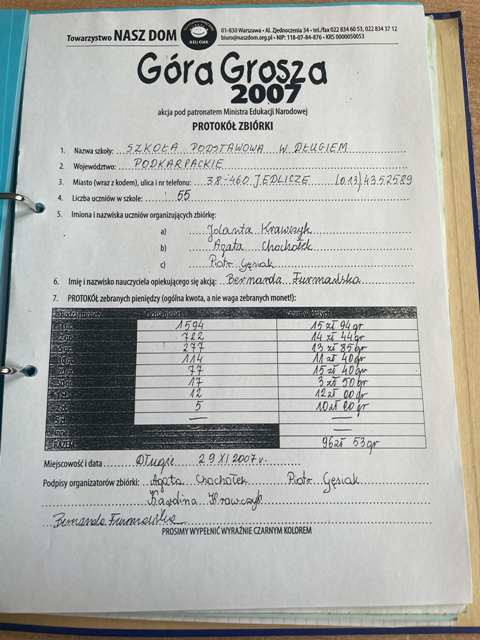 Towarzystwo NASZ DOM
01-830 Warszawa • Al. Zjednoczenia 34 • tel./fax 022 834 60 53, 022 834 37 12
biuro@naszdom.org.pl • NIP: 118-07-84-876 • KRS 0000050653
Góra Grosza
2007
akcja pod patronatem Ministra Edukacji Narodowej
PROTOKÓŁ ZBIÓRKI
1. Nazwa szkoły: SZKOŁA PODSTAWOWA W DŁUGIEM
2. Województwo: PODKARPACKIE
3. Miasto (wraz z kodem), ulica i nr telefonu: 38-460 JEDLICZE (013) 4352589
4. Liczba uczniów w szkole: 55
5. Imiona i nazwiska uczniów organizujących zbiórkę:
a) Jolanta Krawczyk
b) Agata Chochołek
c) Piotr Gęsiak
6. Imię i nazwisko nauczyciela opiekującego się akcją: Bernarda Furmańska
7. PROTOKÓŁ zebranych pieniędzy (ogólna kwota, a nie waga zebranych monet!):
1594 15 zł 94 gr
722 14 zł 44 gr
277 13 zł 85 gr
114 11 zł 40 gr
77 15 zł 40 gr
17 3 zł 50 gr
12 12 zł 00 gr
5 10 zł 00 gr
96 zł 53 gr
Miejscowość i data Długie 29 XI 2007 r.
Podpisy organizatorów zbiórki: Agata Chochołek Piotr Gęsiak
Karolina Krawczyk
Bernarda Furmańska
PROSIMY WYPEŁNIĆ WYRAŹNIE CZARNYM KOLOREM